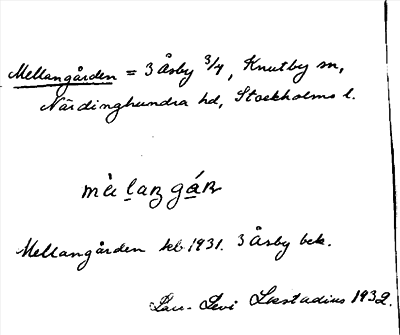 Mellangården = 3 Åsby 3/4, Knutby sn,
Närdinghundra hd, Stockholms l.
mèlaŋgáɳ
Mellangården kb 1931. 3 Åsby bek.
Lars-Levi Læstadius 1932.